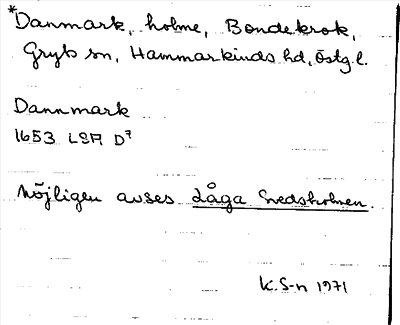 *Danmark, holme, Bondekrok,
Gryts sn, Hammarkinds hd, Östg.l.
Dannmark
1653 LSA D⁷
Möjligen avses Låga Svedsholmen.
K.S-n 1971